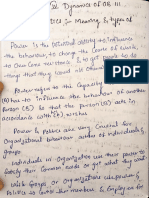 Dynamics of OB III
Meaning & types of
Power is the potential ability to influence
the behaviour, to change the course of events,
to over come resistance & to get people to do
thing that they would not otherwise do.
Power refers to the Capacity that Person
(A) has to influence the behaviour of another
Person (B) so that the Person (B) acts in
accordance with (A) wishes
Power & Politics are very Crucial for
Organizational behaviour of individuals &
groups.
Individuals in Organization use their power to
Satisfy their Common needs or get what they want
While Groups or Organizations use power &
Politics to Control their members & Employees for